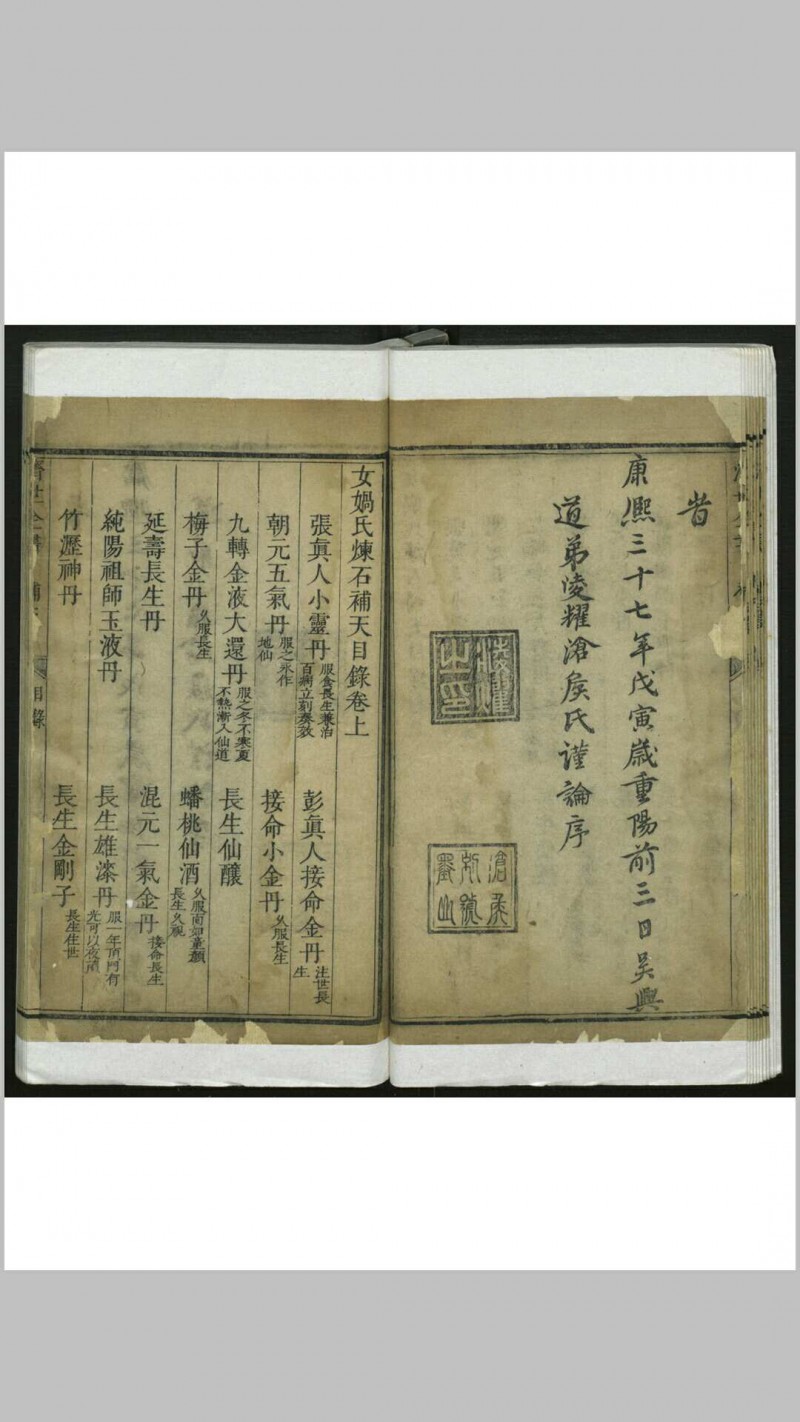 昔
康熙三十七年戊寅歲重陽前三日吳興
道弟凌耀滄矦氏謹論序
女媧氏煉石補天目錄卷上
張眞人小靈丹 服食長生兼治百病立刻奏效
彭眞人接命金丹 注世長生
朝元五氣丹 服之永作地仙
接命小金丹 久服長生
九轉金液大還丹 服之冬不寒夏不熱漸入仙道
長生仙釀
梅子金丹 久服長生
蟠桃仙酒 久服面如童顏長生久視
延壽長生丹
混元一氣金丹 接命長生
純陽祖師玉液丹
長生雄漆丹 服一年頂門有光可以夜讀
竹瀝神丹
長生金剛子 長生住世
目錄